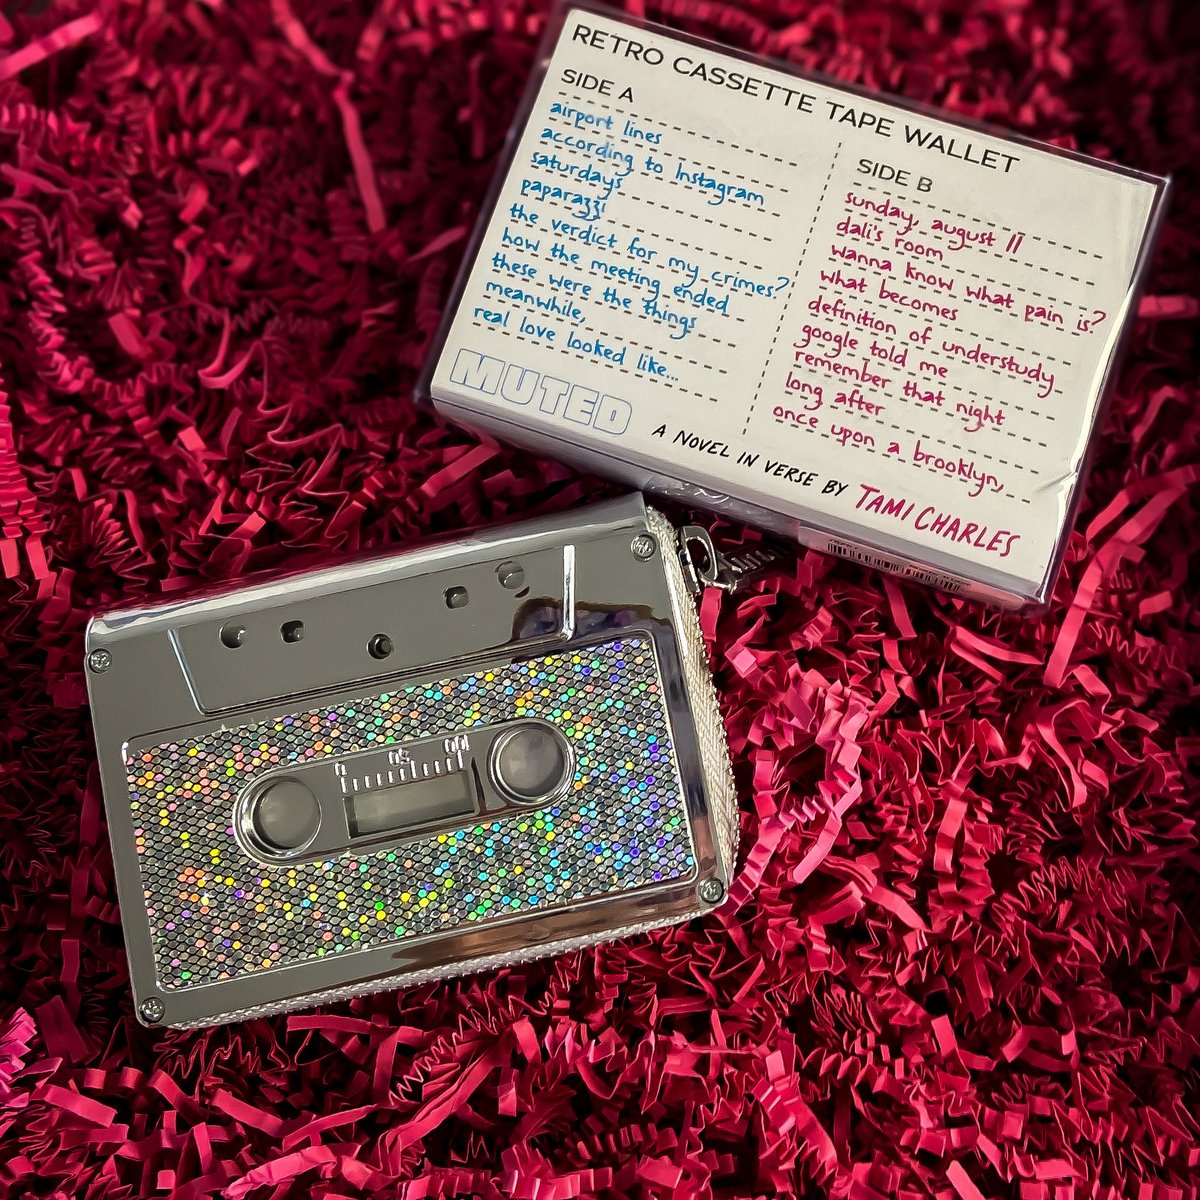 RETRO CASSETTE TAPE WALLET
SIDE A
airport lines
according to Instagram
saturdays
paparazzi
the verdict for my crimes?
how the meeting ended
these were the things
meanwhile,
real love looked like...
SIDE B
sunday, august 11
dali's room
wanna know what pain is?
what becomes
definition of understudy
google told me
remember that night
long after
once upon a brooklyn,
MUTED
A NOVEL IN VERSE BY TAMI CHARLES
0 50 100